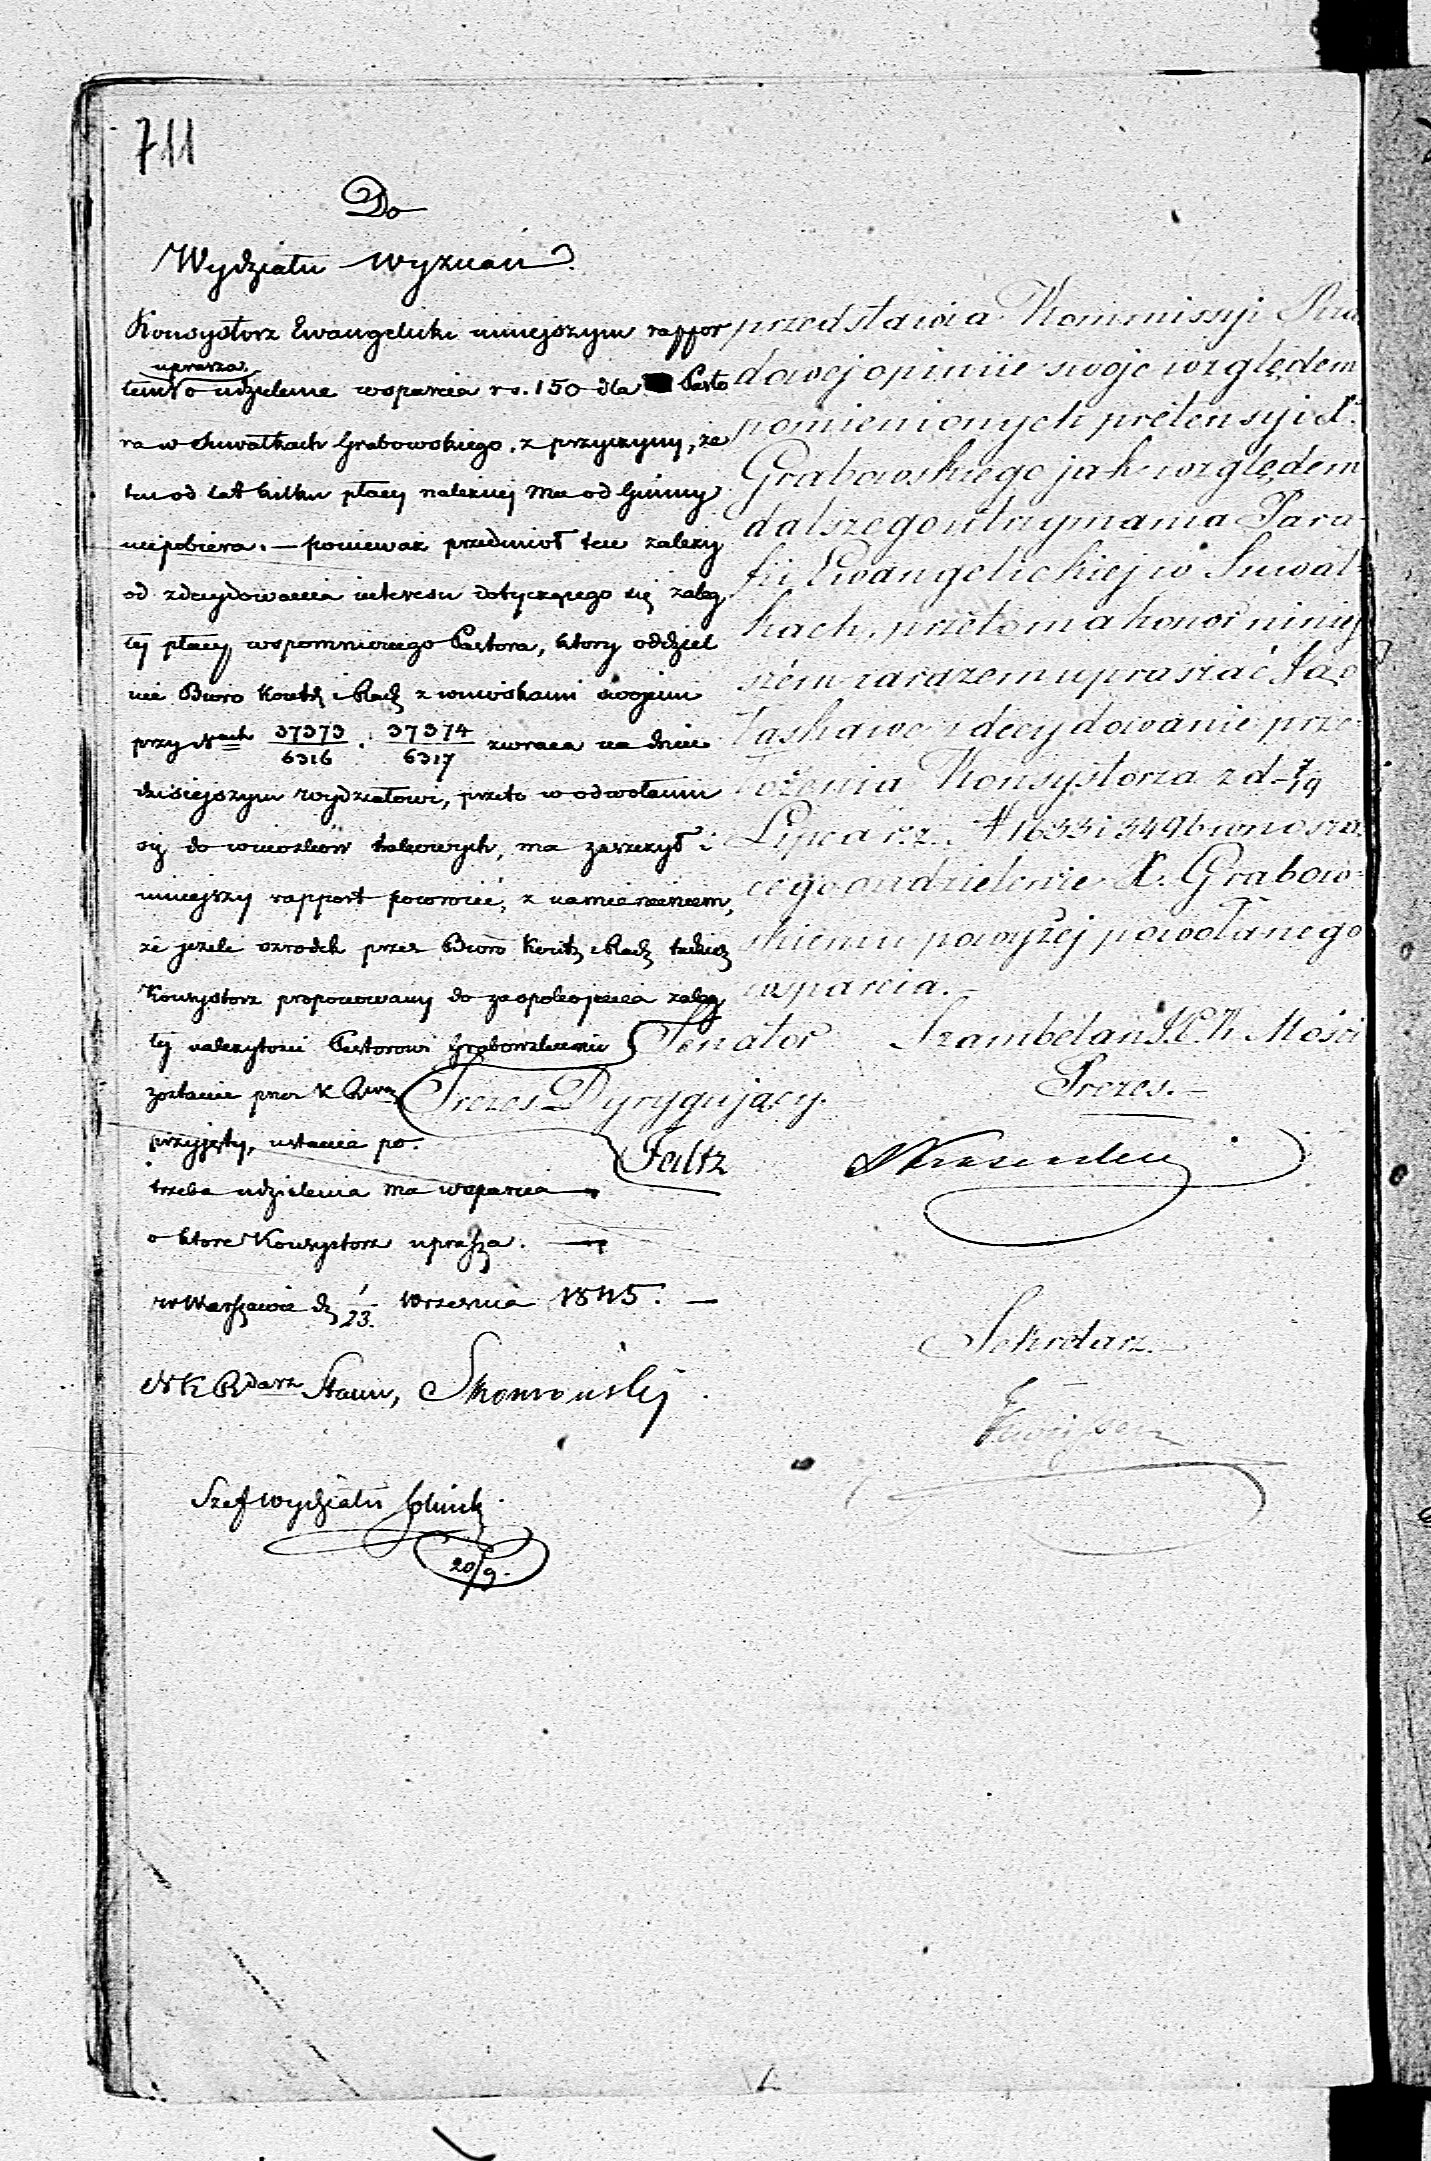 711
Do
Wydziału Wyznań.
Konsystorz Ewangelicki niniejszym rappor
uprasza
tem o udzielenie wsparcia rs. 150 dla Pasto
ra w Suwałkach Grabowskiego, z przyczyny, że
ten od lat kilku płacy należnej Mu od Gminy
niepobiera. — ponieważ przedmiot ten zależy
od zdecydowania interesu dotyczącego się zaleg
łej płacy, wspomnionego Pastora, który oddziel
nie Biuro Kontr i Rach z wnioskami swojemi
przy Nrach 37373/6316 . 37374/6317 zwraca na dniu
dzisiejszym Wydziałowi, przeto w odwołaniu
się do wniosków takowych, ma zaszczyt i
niniejszy rapport powrócić, z namienieniem,
że jeżeli środek przez Biuro Kontr i Rach
Konsystorz proponowany do zaspokojenia zaleg
łej należytości Pastorowi Grabowskiemu
zostanie przez K Rzą
przyjęty, ustanie po-
trzeba udzielenia mu wsparcia
o które Konsystorz uprasza. —
w Warszawie d 1/23 Września 1845. —
Szef Wydziału
20/9.
przedstawia Kommissyi Rzą
dowej opinije swoje względem
pomienionych pretensyi X.
Grabowskiego jak względem
dalszego utrzymania Para-
fii Ewangelickiej w Suwał-
kach, przeto ma honor niniej
szém zarazem upraszać Jaó
łaskawe zdecydowanie prze
łożenia Konsystorza z d. 7/19
Lipca r. z. N 1633 i 3496 wnoszą
cego oudzielenie X. Grabow-
skiemu powyżej powołanego
wsparcia. —
Senator Szambelan J. C. K. Mości
Prezes Dyrygujący. Prezes. —
Faltz
Sekretarz.